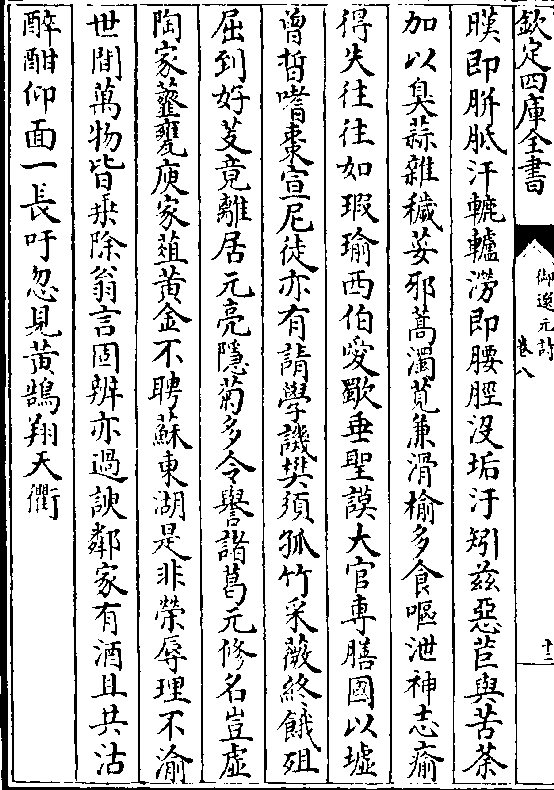 欽定四庫全書
御選元詩
卷八
十三
暵即胼胝汗轆轤澇即腰脛没垢汙矧兹惡苣與苦荼
加以臭蒜雜穢荽邪蒿濁莧兼滑榆多食嘔泄神志瘉
得失往往如瑕瑜西伯愛歜垂聖謨大官専膳國以墟
曾晳嗜棗宣尼徒亦有請學譏樊須孤竹采薇終餓殂
屈到好芰竟離居元亮隱菊多令譽諸葛元修名豈虛
陶家虀甕庾家葅黃金不聘蘇東湖是非榮辱理不渝
世間萬物皆乗除翁言固辨亦過諛鄰家有酒且共沽
醉酣仰面一長吁忽見黃鵠翔天衢